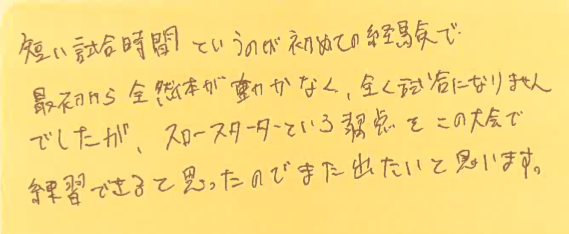 短い試合時間というのが初めての経験で
最初から全然体が動かなく、全く試合になりません
でしたが、スロースターターという弱点をこの大会で
練習できると思ったのでまた出たいと思います。